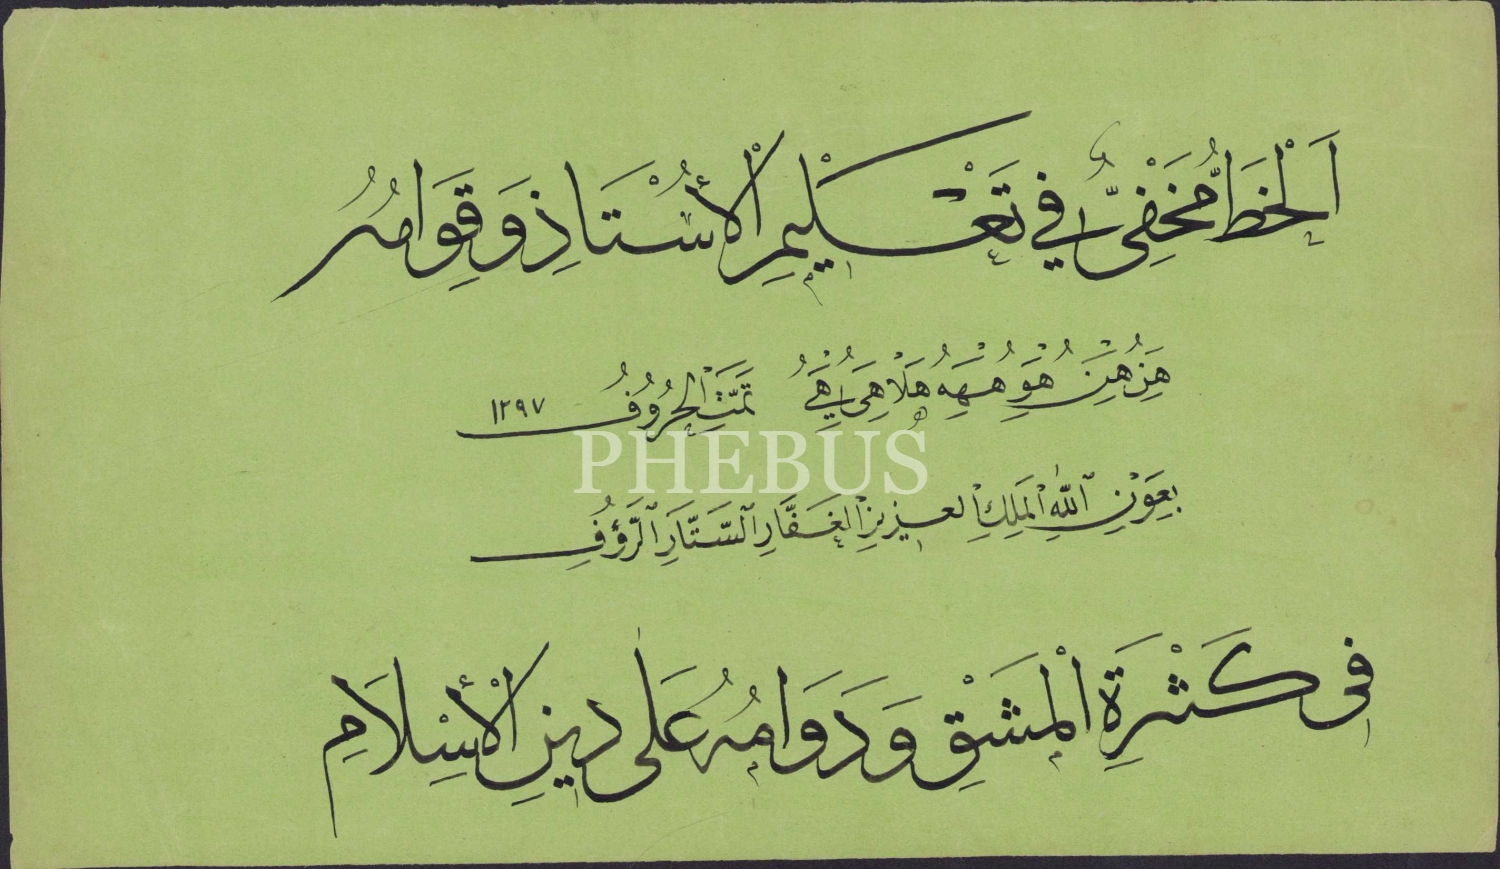 اَلْخَطُّ مَخْفِىٌّ فِي تَعْلِيمِ الْأُسْتَاذِ وَقِوَامُهُ
هَنْ هُنَ هُوَ هُهَهِ هُلَا هَىْ هَيُ تَمَّتِ الْحُرُوفُ ١٢٩٧
PHEBUS
بِعَوْنِ ٱللّٰهِ الْمَلِكِ الْعَزِيزِ الْغَفَّارِ السَّتَّارِ الرَّؤُفِ
فى كَثْرَةِ الْمَشْقِ وَدَوَامُهُ عَلٰى دِينِ الْأِسْلَامِ